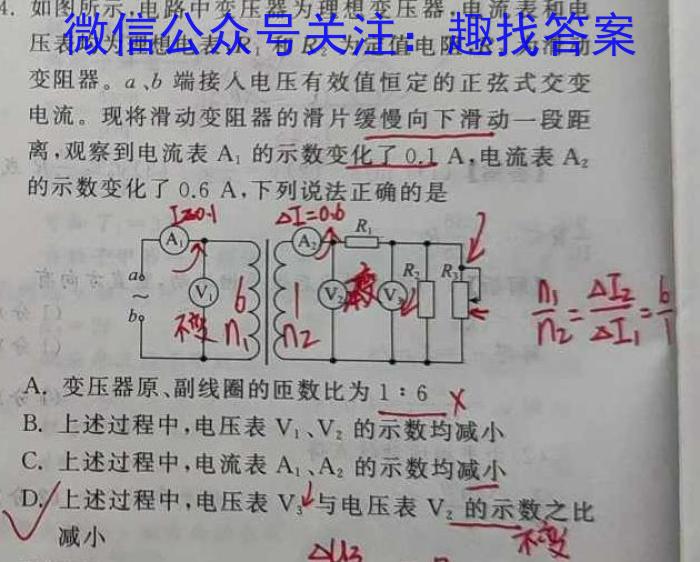 4. 如图所示,电路中变压器为理想变压器,电流表和电
微信公众号关注:趣找答案
变阻器。a、b 端接入电压有效值恒定的正弦式交变
电流。现将滑动变阻器的滑片缓慢向下滑动一段距
离,观察到电流表 A₁ 的示数变化了 0.1 A,电流表 A₂
的示数变化了 0.6 A,下列说法正确的是
I=0.1
ΔI=0.6
A₁
A₂
R₁
a
~
b
V₁
6
1
V₂
变
V₃
R₂
R₃
不变
n₁
n₂
n₁/n₂=ΔI₂/ΔI₁=6/1
A. 变压器原、副线圈的匝数比为 1∶6 ×
B. 上述过程中,电压表 V₁、V₂ 的示数均减小
C. 上述过程中,电流表 A₁、A₂ 的示数均减小
D. 上述过程中,电压表 V₃ 与电压表 V₂ 的示数之比
减小
不变